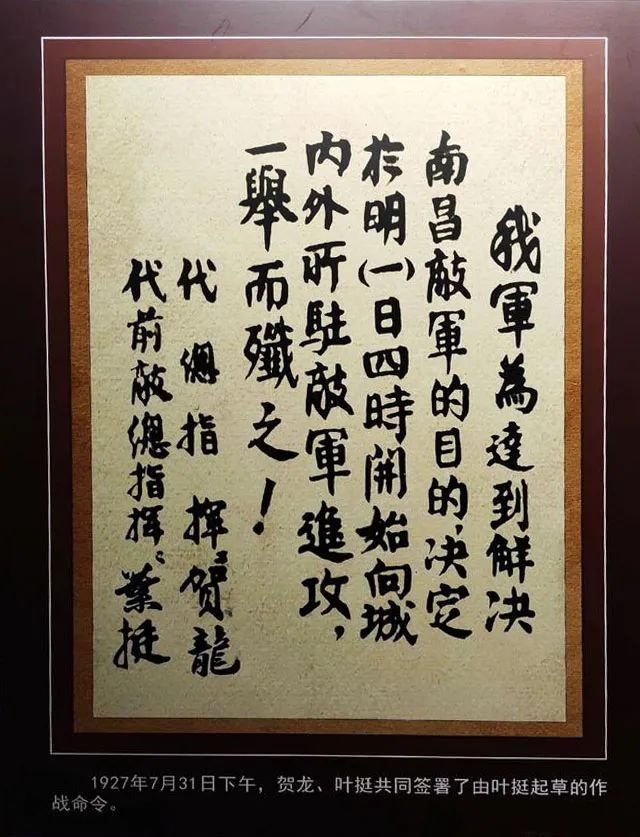 我軍為達到解决
南昌敵軍的目的,决定
於明(一)日四時開始向城
内外所駐敵軍進攻,
一舉而殲之!
代總指揮。賀龍
代前敵總指揮。葉挺
1927年7月31日下午，贺龙、叶挺共同签署了由叶挺起草的作
战命令。